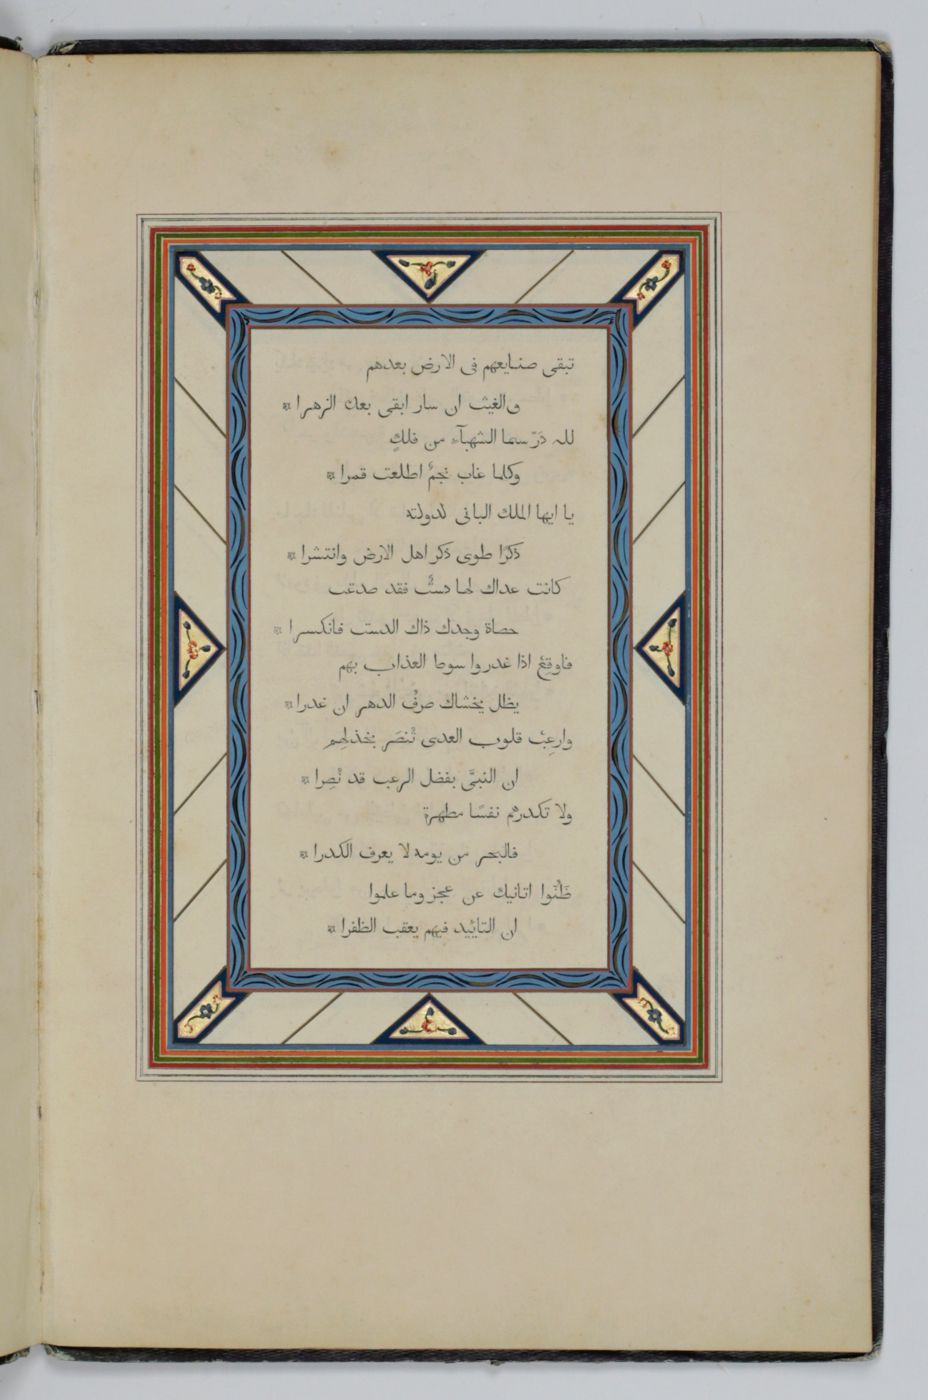 تبقى صنايعهم فى الارض بعدهم
والغيث ان سار ابقى بعده الزهرا
لله دَرّ سما الشهبآء من فلكٍ
وكلما غاب نجمٌ اطلعت قمرا
يا ايها الملك البانى لدولته
ذكرًا طوى ذكر اهل الارض وانتشرا
كانت عداك لها دستٌ فقد صدعت
حصاة وجدك ذاك الدست فانكسرا
فاوقعْ اذا غدروا سوط العذاب بهم
يظل يخشاك صرفْ الدهر ان غدرا
وارعِبْ قلوب العدى تُنصَر بخذلهِم
ان النبىَّ بفضل الرعب قد نُصِرا
ولا تكدرهم نفسًا مطهرة
فالبحر من يومه لا يعرف الكدرا
ظَنّوا اتانيك عن عجز وما علموا
ان التاييد فيهم يعقب الظفرا